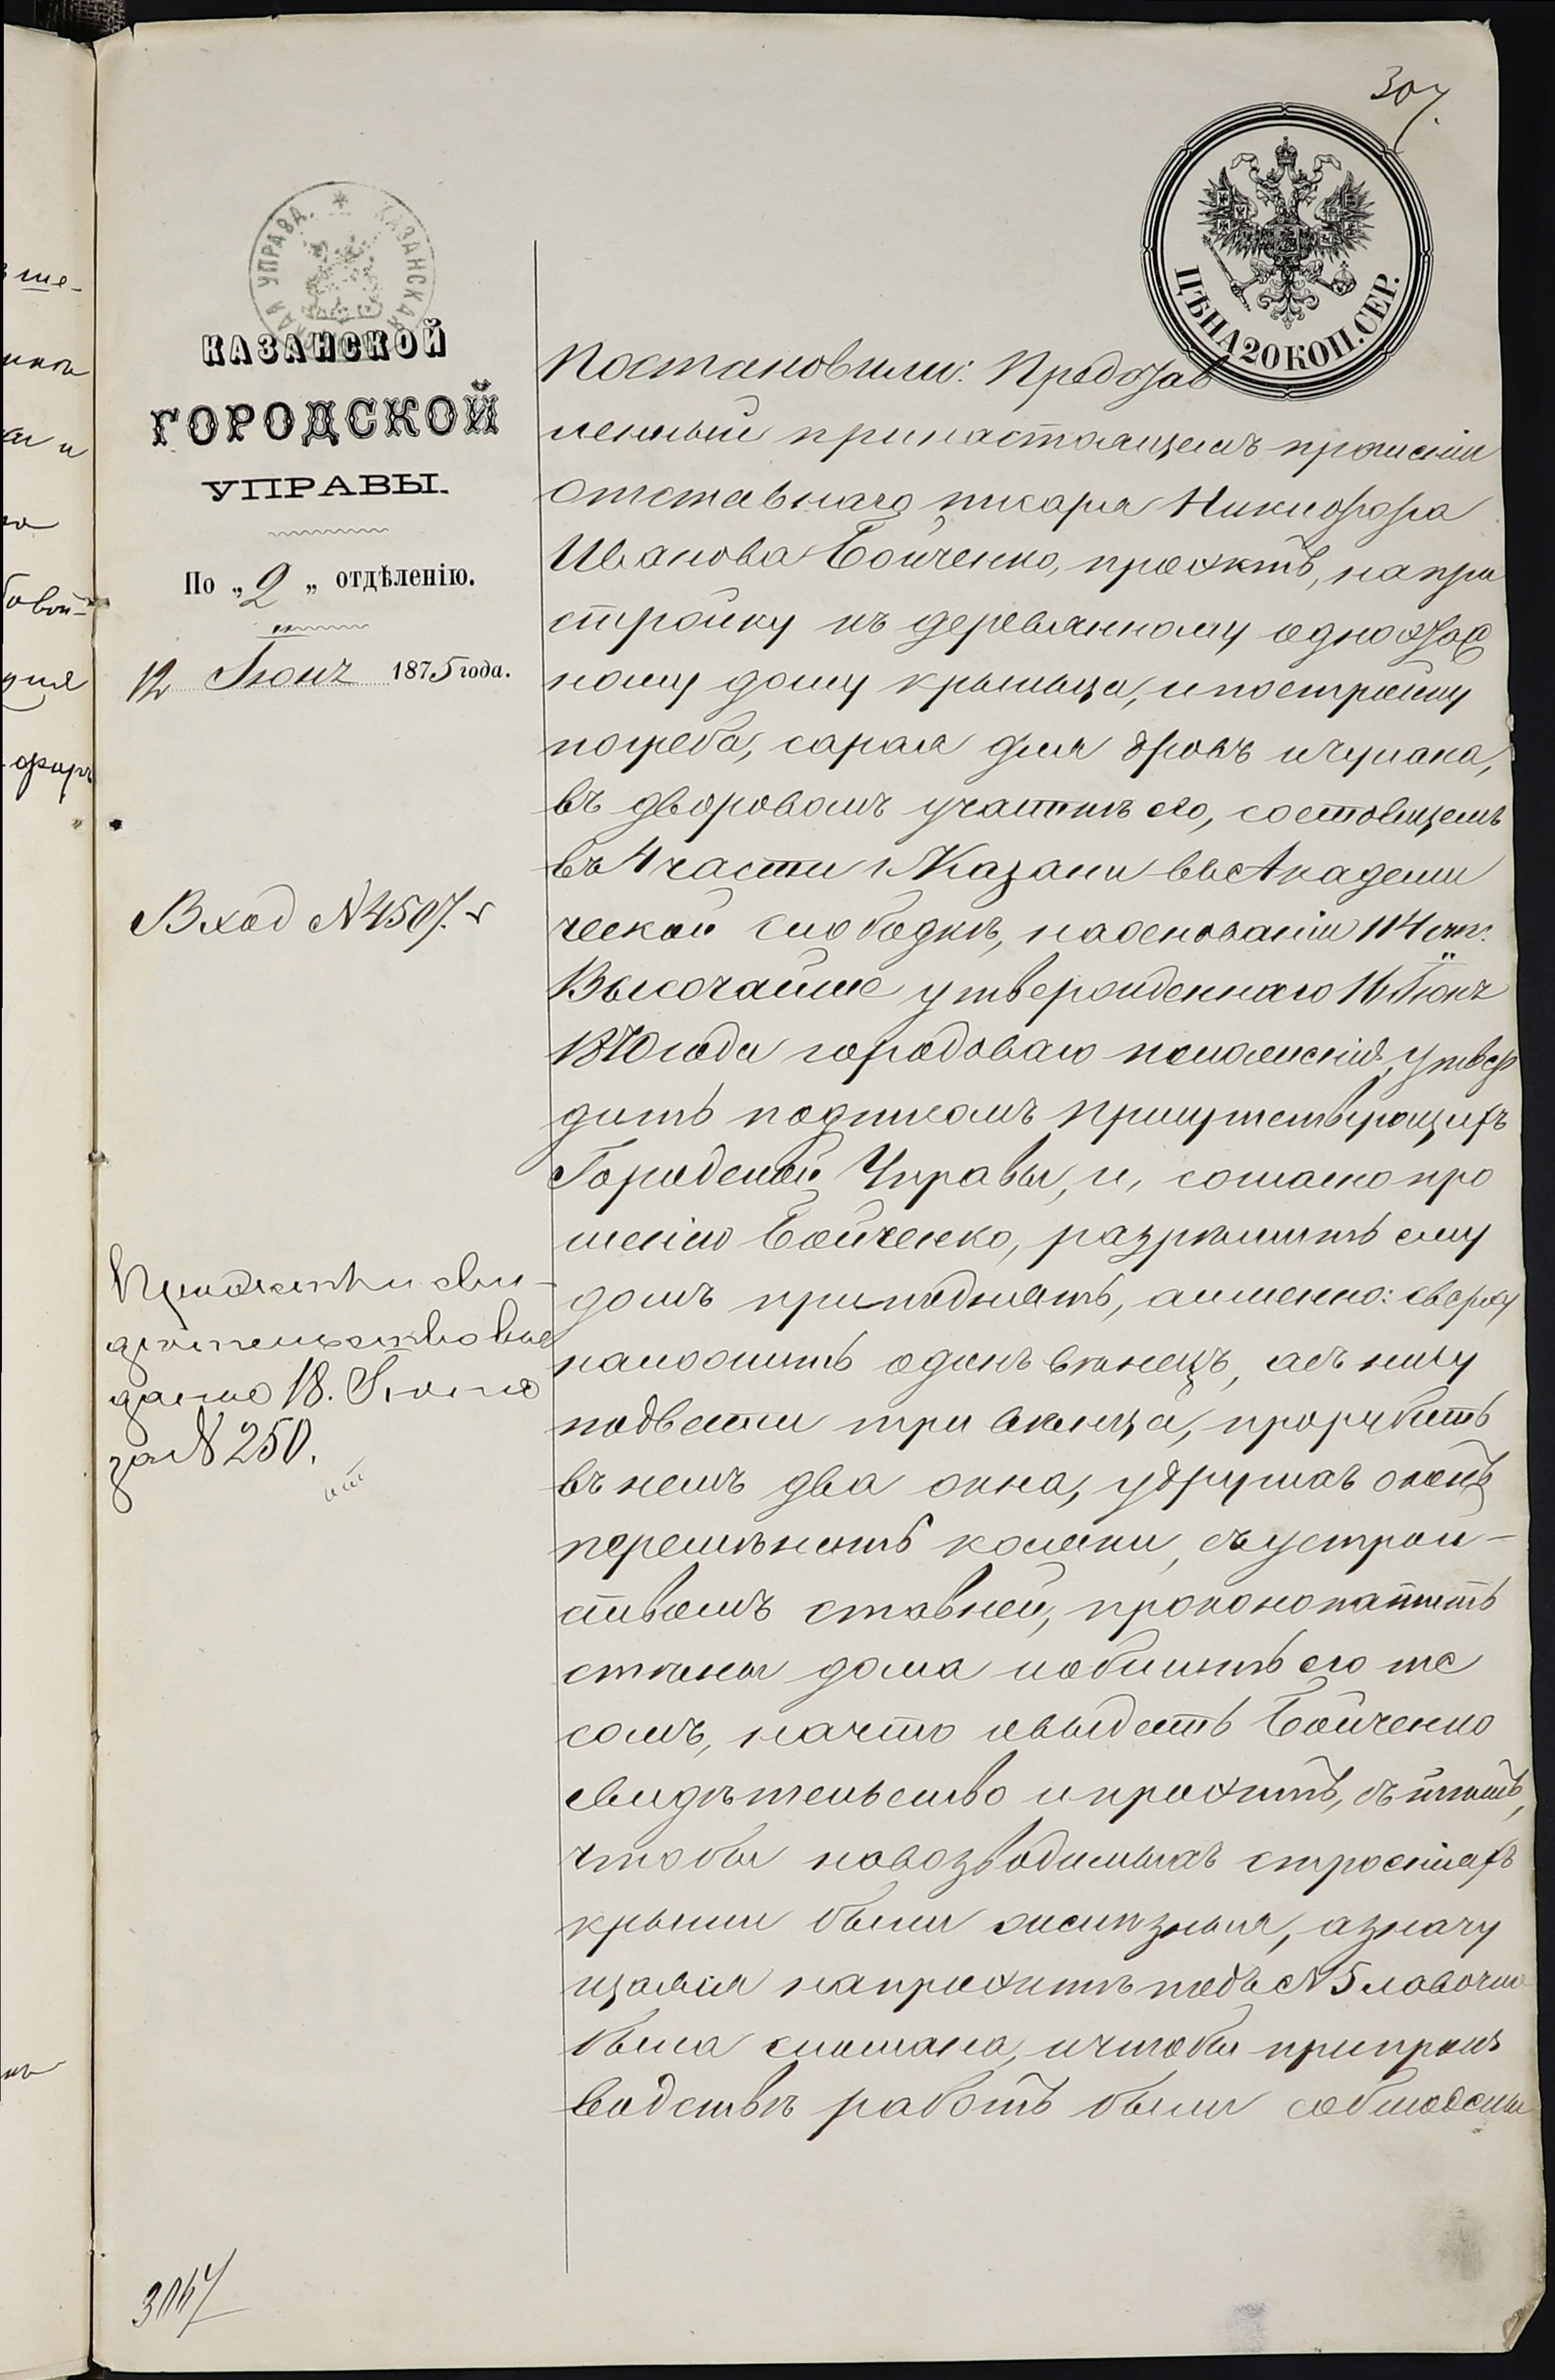 307.
КАЗАНСКАЯ УПРАВА.
ЦѢНА 20 КОП. СЕР.
КАЗАНСКОЙ
ГОРОДСКОЙ
УПРАВЫ.
По „2„ отдѣленію.
12 Іюня 1875 года.
Вход №4507.
Проэктъ и сви-
дѣтельство вы
даны 18. Іюня
за №250.
Постановили: Представ
ленный при настоящемъ прошеніи
отставнаго писаря Никифора
Иванова Бойченко, проэктъ, на при
стройку къ деревянному одноэтаж
ному дому крыльца, и постройку
погреба, сарая для дровъ и чулана,
въ дворовомъ участкѣ его, состоящемъ
въ 4 части г. Казани въ Академи
ческой слободкѣ, на основаніи 114 ст.
Высочайше утвержденнаго 16 Іюня
1870 года городоваго положенія, утвер
дить подписомъ присутствующихъ
Городской Управы, и, согласно про
шенію Бойченко, разрѣшить ему
домъ приподнять, а именно: сверху
наложить одинъ вѣнецъ, а съ низу
подвести три вѣнца, прорубить
въ немъ два окна, у другихъ оконъ
перемѣнить косяки, съ устрой-
ствомъ ставней, проконопатить
стѣны дома и обшить его те
сомъ, на что и выдать Бойченко
свидѣтельство и проэктъ, съ тѣмъ,
чтобы на возводимыхъ строеніяхъ
крыши были желѣзныя, а значу
щаяся на проэктѣ подъ №5 лавочка
была сломана, и чтобы при произ
водствѣ работъ были соблюдены